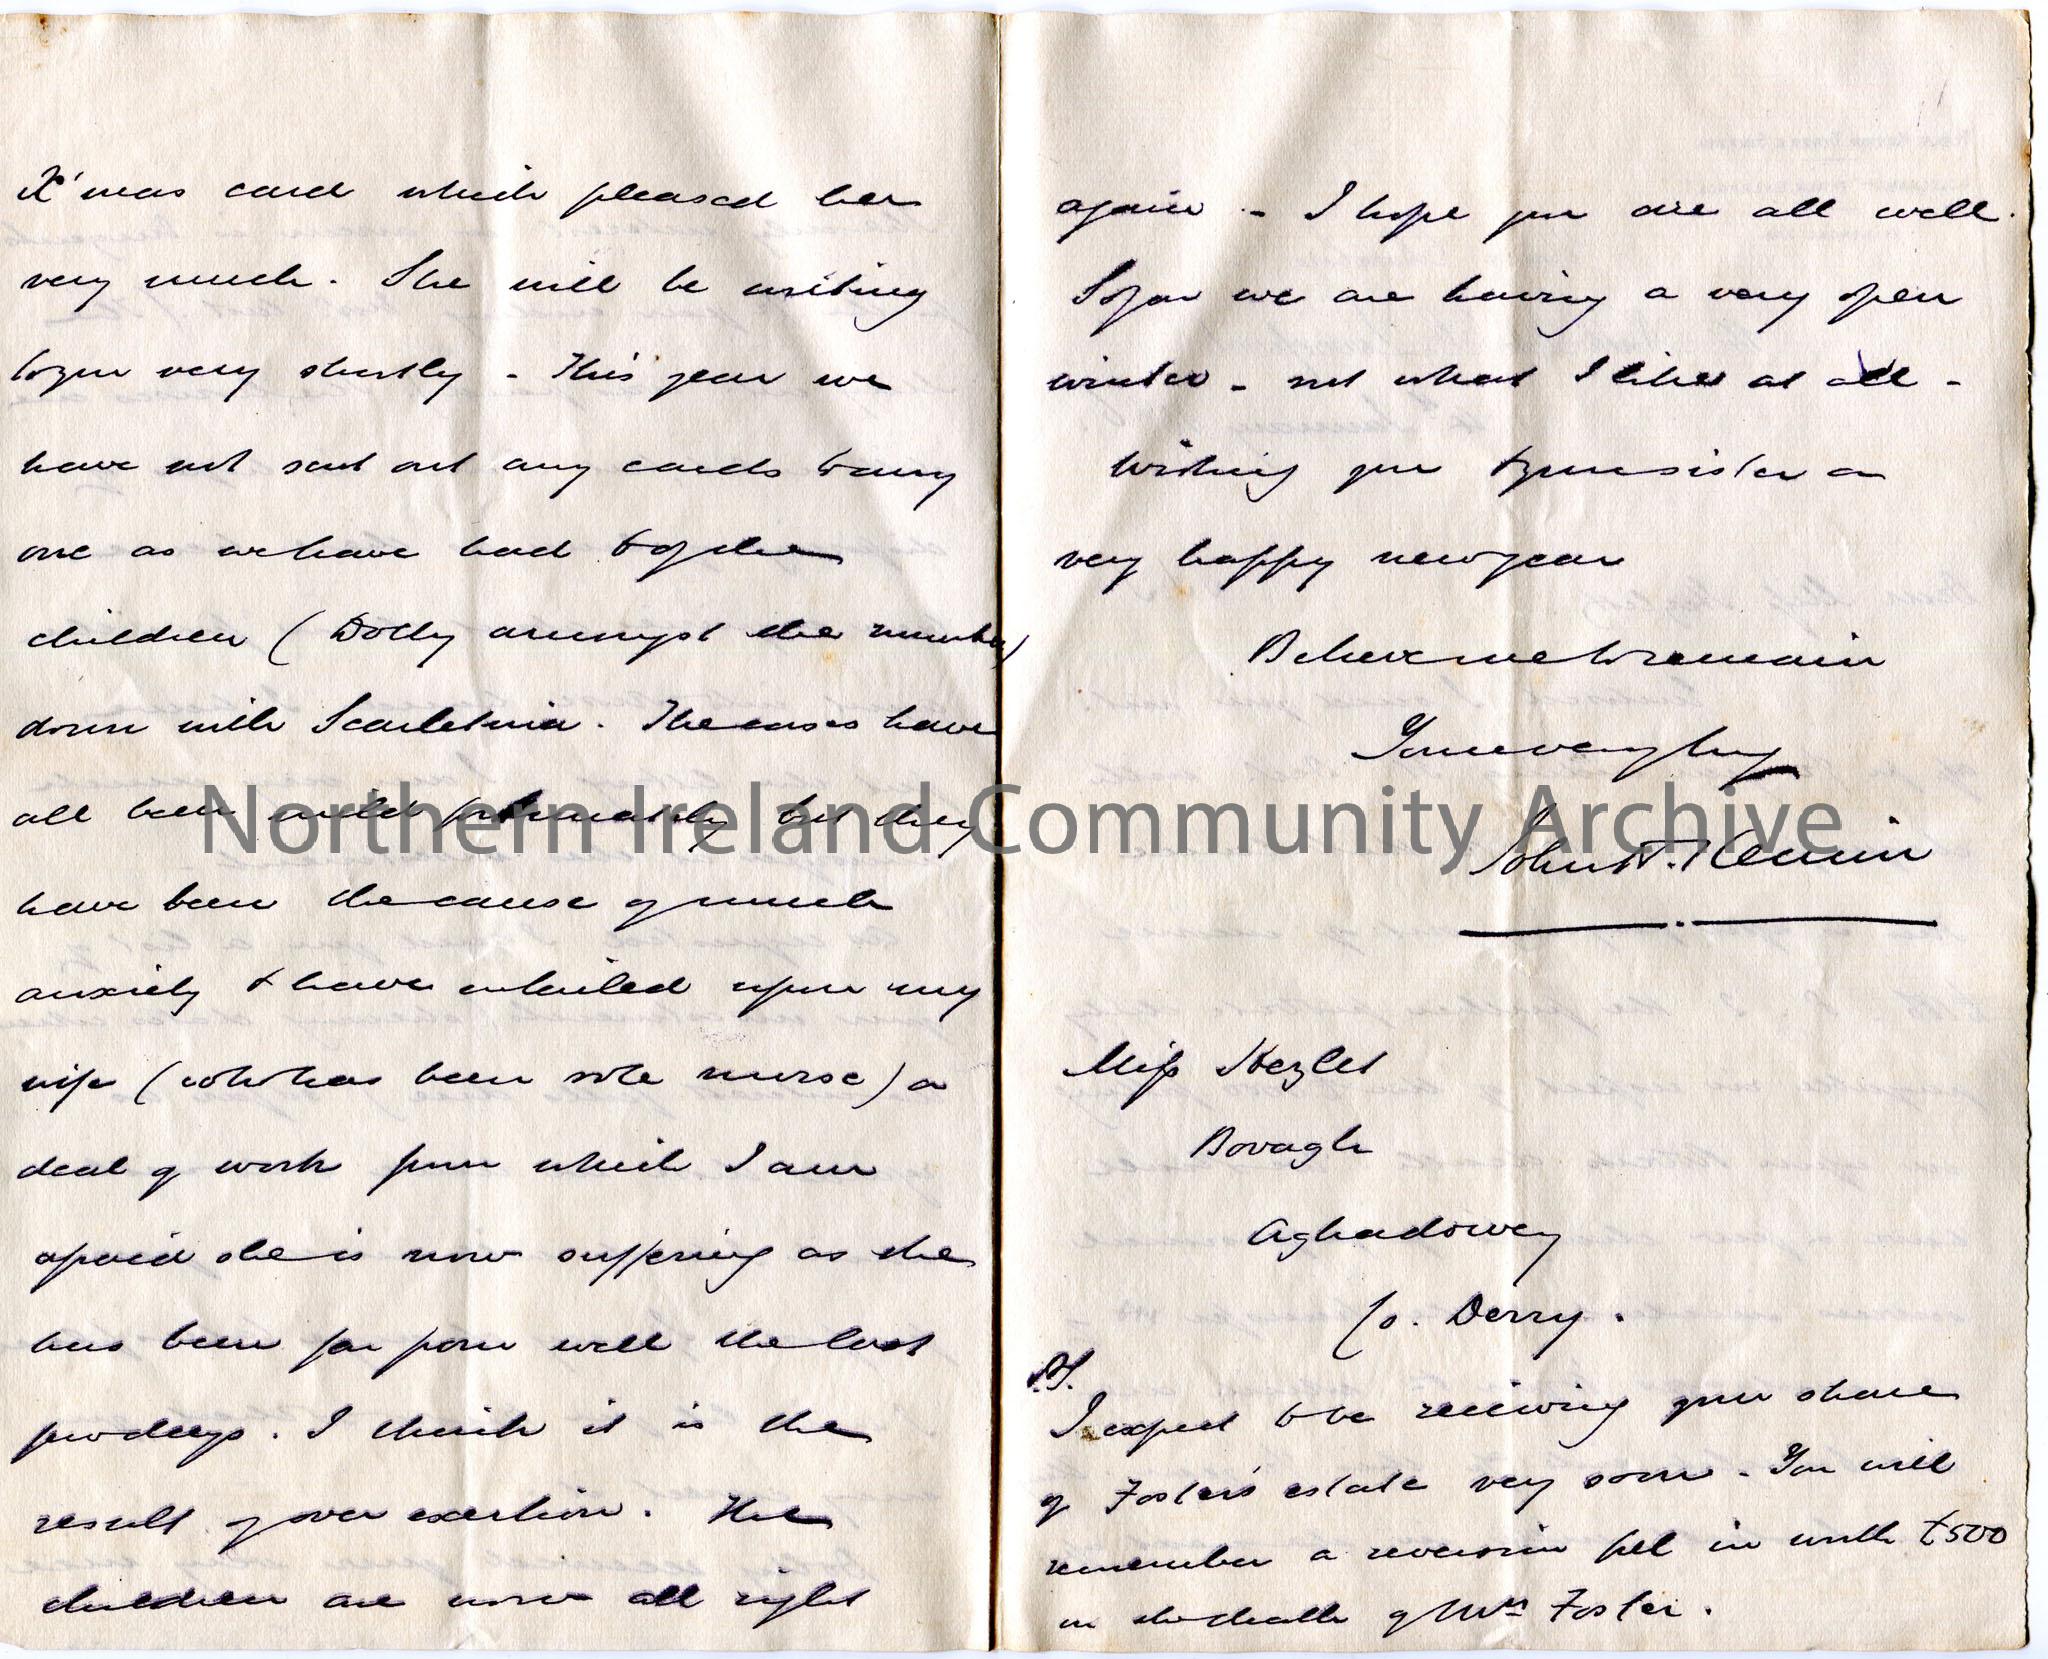 X'mas card which pleased her
very much. She will be writing
to you very shortly - This year we
have not sent out any cards to any
one as we have had 6 of the
children (Dolly amongst the number)
down with Scarletina. The cases have
all been mild fortunately but they
have been the cause of much
anxiety & have entailed upon my
wife (who has been sole nurse) a
deal of work from which I am
afraid she is now suffering as she
has been far from well the last
few days. I think it is the
result of over exertion. The
children are now all right
again - I hope you are all well.
So far we are having a very open
winter - not what I like at all -
Wishing you & your sister a
very happy new year
Believe me to remain
Yours very truly
John H.
Miss Hezlet
Bovagh
Aghadowey
Co. Derry.
P.S.
I expect to be receiving your share
of Foster's estate very soon. You will
remember a reversion fell in worth £500
on the death of Mrs Foster.
Northern Ireland Community Archive